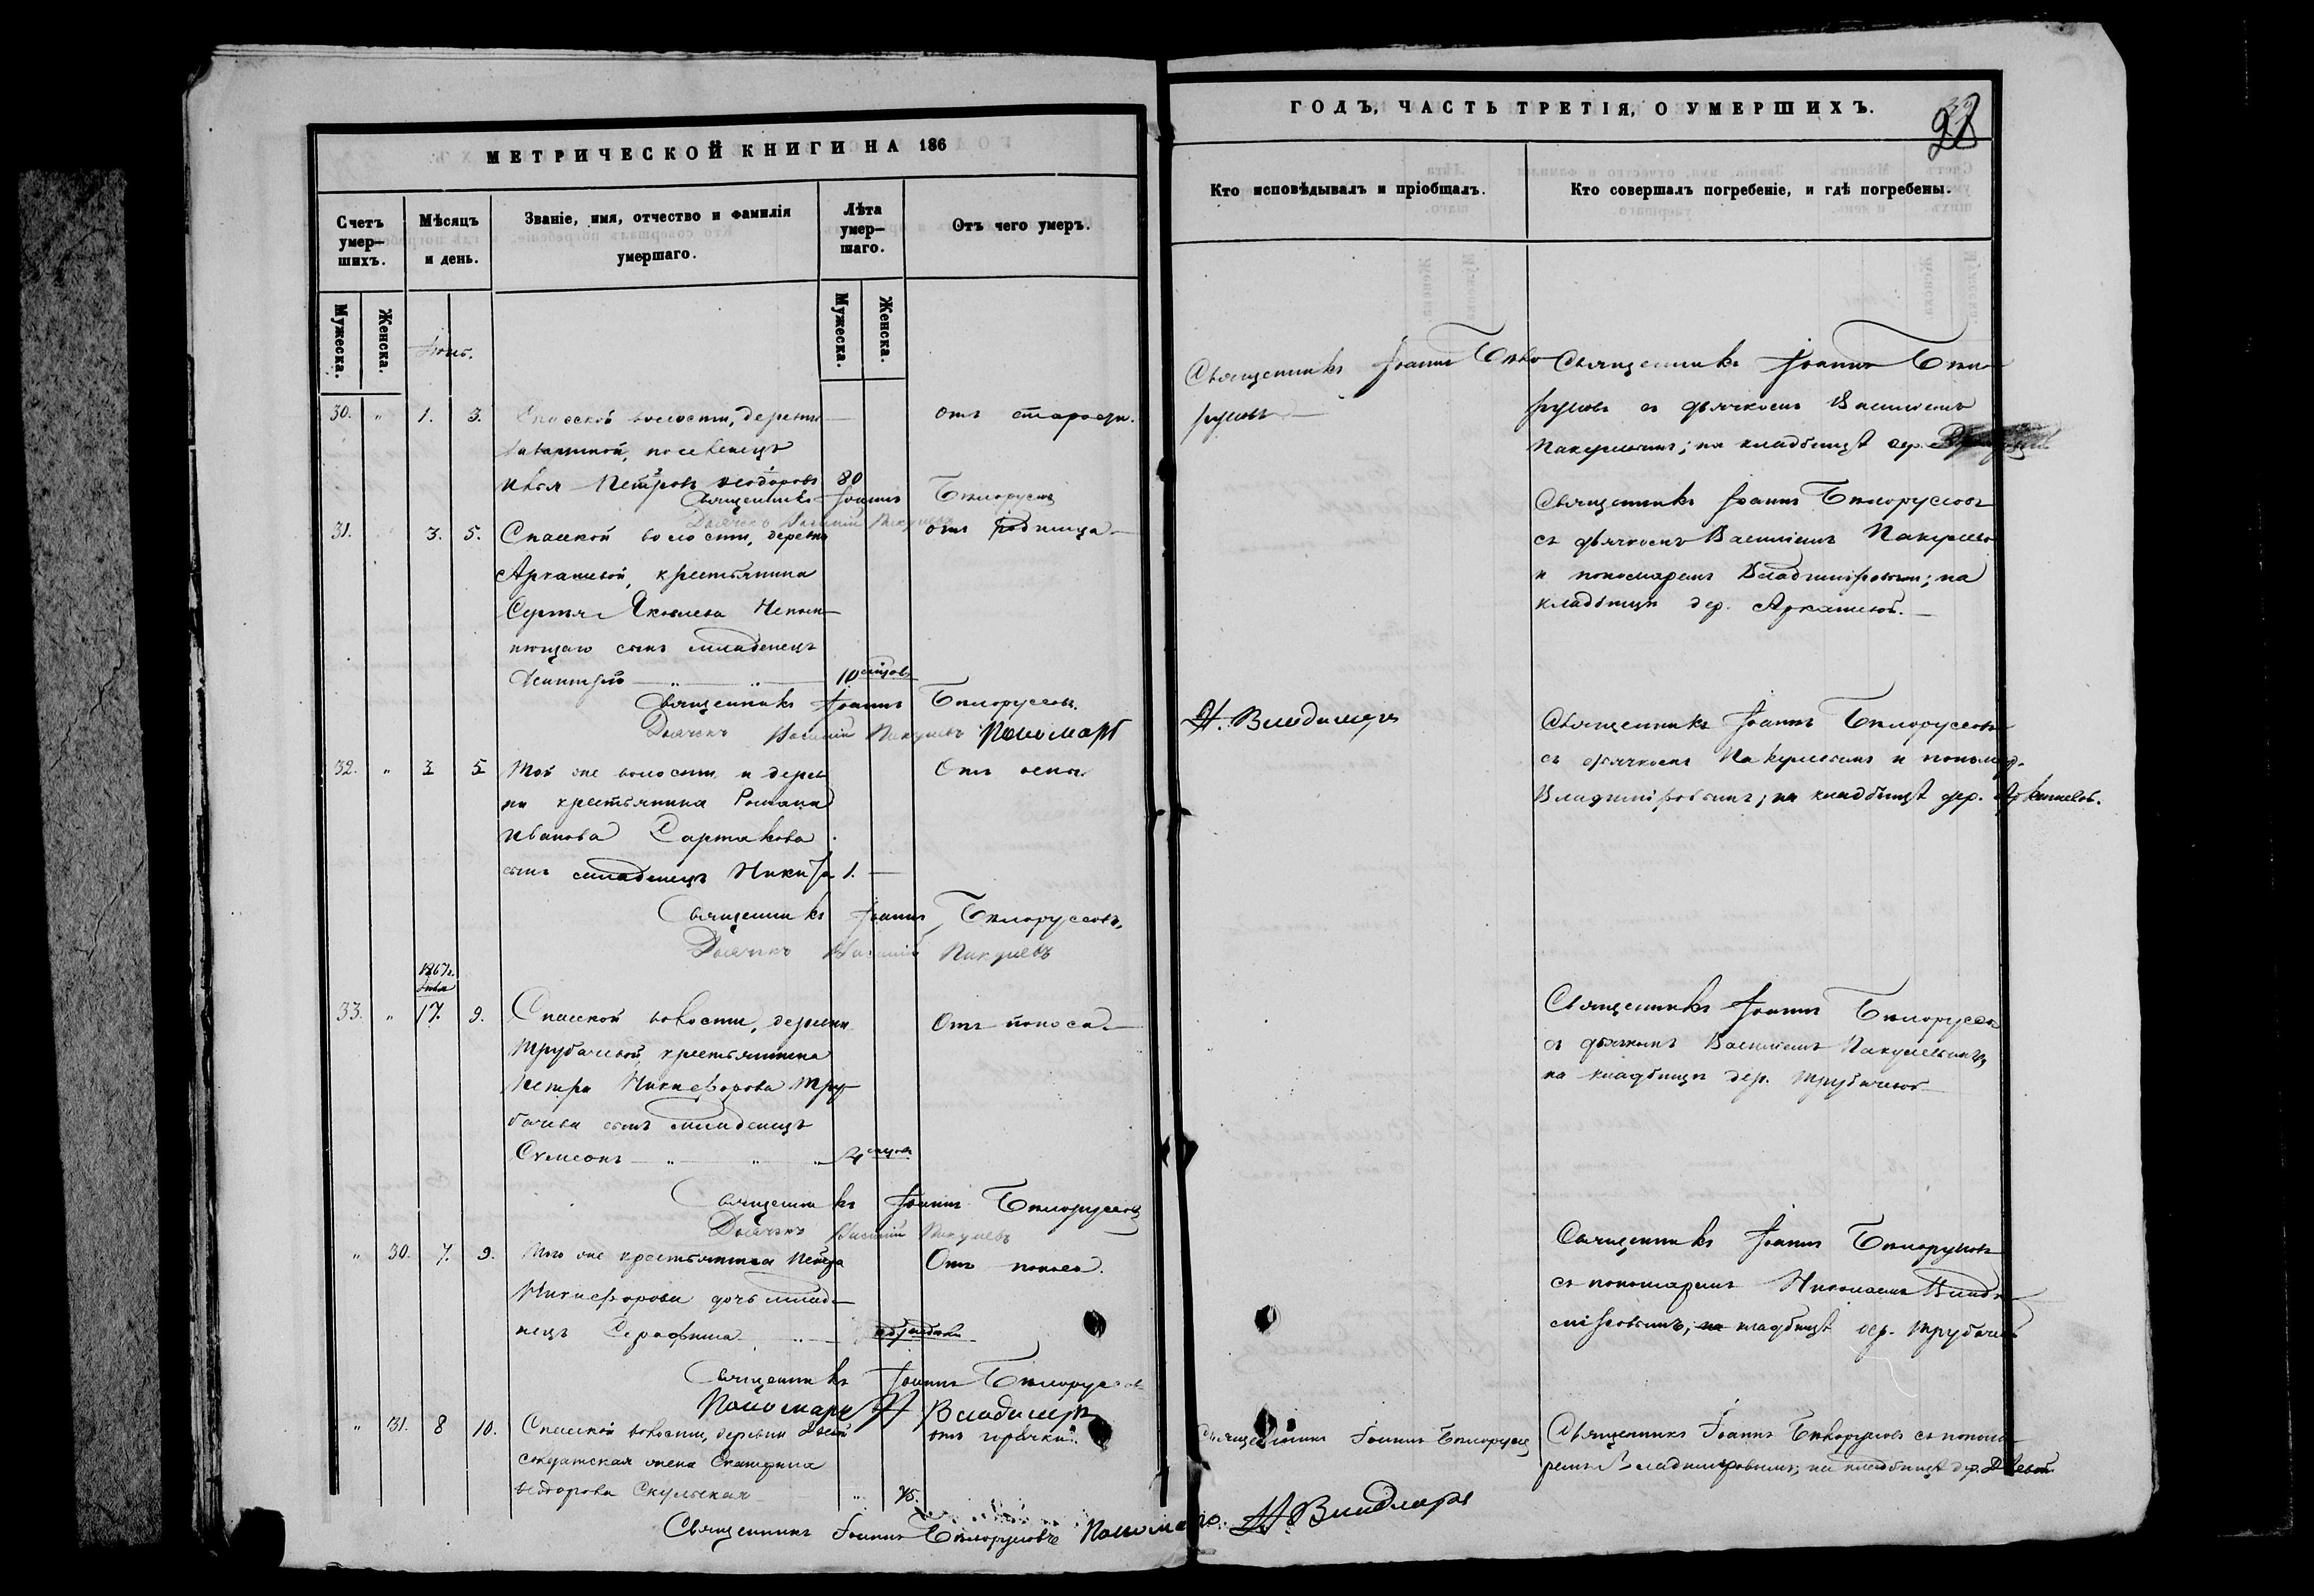 МЕТРИЧЕСКОЙ КНИГИ НА 186
Счетъ умер-шихъ.
Мѣсяцъ и день.
Званіе, имя, отчество и фамилія умершаго.
Лѣта умер-шаго.
Отъ чего умеръ.
Мужеска.
Женска.
Мужеска.
Женска.
30. " 1. 3. Спасской волости, деревни
отъ старости.
поселенецъ
Петровъ Ѳеодоровъ 80
Священникъ Іоаннъ Бѣлорусовъ
Дьячекъ Василій Пакулевъ
31. 3. 5. Спасской волости, деревни
отъ родимца
Аркашевой, крестьянина
Сергѣя Яковлева Непом-
нющаго сынъ младенецъ
Димитрій " " 10 мѣсяцовъ
Священникъ Іоаннъ Бѣлорусовъ.
Дьячекъ Василій Пакулевъ Пономарь
32. " 3 5 Той же волости и дерев
Отъ оспы
ни крестьянина Романа
Иванова Сартакова
сынъ младенецъ Никита 1.
Священникъ Іоаннъ Бѣлорусовъ,
Дьячекъ Василій Пакулевъ
1867 г.
Іюня
33. " 17. 9. Спасской волости, деревни
Отъ поноса.
Трубачевой крестьянина
Петра Никифорова Тру-
бачева сынъ младенецъ
Сѵмеонъ " " "
Священникъ Іоаннъ Бѣлорусовъ
Дьячекъ Василій Пакулевъ
" 30. 7. 9. Того же крестьянина Петра
Отъ поноса.
Никифорова дочь млад-
нецъ Серафима "
Священникъ Іоаннъ Бѣлорусовъ
Пономарь Н Владимировъ
" 31. 8 10. Спасской волости, деревни
отъ горячки.
солдатская жена Екатерина
Ѳеодорова Скульская " 75.
Священникъ Іоаннъ Бѣлорусовъ Пономарь Н. Владимировъ
ГОДЪ, ЧАСТЬ ТРЕТІЯ, О УМЕРШИХЪ.
Кто исповѣдывалъ и пріобщалъ.
Кто совершалъ погребеніе, и гдѣ погребены.
Священникъ Іоаннъ Бѣло-
русовъ
Священникъ Іоаннъ Бѣло-
русовъ съ дьячкомъ Василіемъ
Пакулевымъ; на кладбищѣ дер.
Священникъ Іоаннъ Бѣлорусовъ
съ дьячкомъ Василіемъ Пакулевы
и пономаремъ Владиміровымъ; на
кладбищѣ дер. Аркашевой.
Н. Владимиръ
Священникъ Іоаннъ Бѣлорусовъ
съ дьячкомъ Пакулевымъ и пономар.
Владиміровымъ; на кладбищѣ дер. Аркашевой.
Священникъ Іоаннъ Бѣлорусов
съ дьячкомъ Василіемъ Пакулевымъ,
на кладбищѣ дер. Трубачевой
Священникъ Іоаннъ Бѣлорусовъ
съ пономаремъ Николаемъ Влади-
міровымъ; на кладбищѣ дер. Трубачевой
Священникъ Іоаннъ Бѣлорусовъ
Священникъ Іоаннъ Бѣлорусовъ съ понома-
ремъ Владиміровымъ; на кладбищѣ дер.